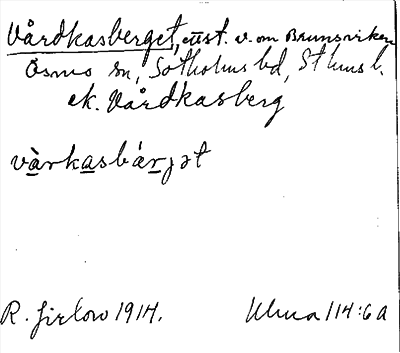 Vårdkasberget, cust. v. om Brunnsviken
Ösmo sn, Sotholms hd, Sthms l.
ek. Vårdkasberg
vàrkasbárjət
R. Jirlow 1914.
Uluma 114:6a